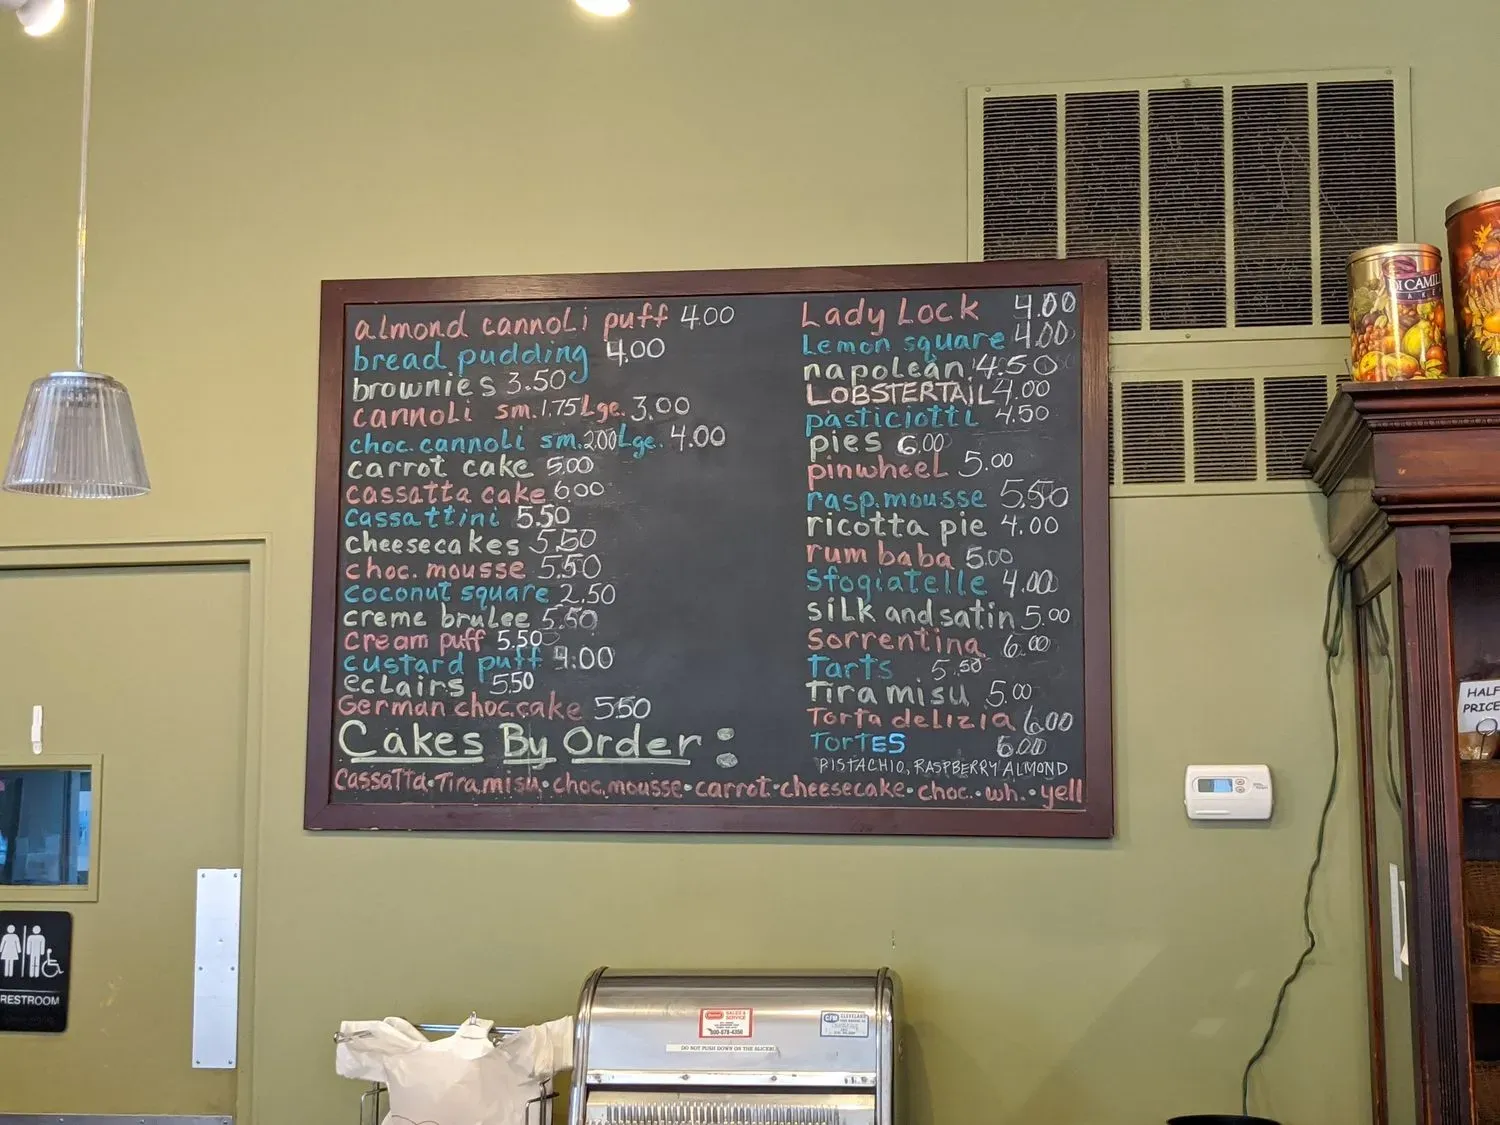 almond cannoli puff 4.00
bread pudding 4.00
brownies 3.50
cannoli sm. 1.75 Lge. 3.00
choc. cannoli sm. 2.00 Lge. 4.00
carrot cake 5.00
cassatta cake 6.00
cassattini 5.50
cheesecakes 5.50
choc. mousse 5.50
coconut square 2.50
creme brulee 5.50
cream puff 5.50
custard puff 4.00
eclairs 5.50
German choc. cake 5.50
Cakes By Order:
Lady Lock 4.00
Lemon square 4.00
napolean 4.50
LOBSTERTAIL 4.00
pasticiotti 4.50
pies 6.00
pinwheel 5.00
rasp. mousse 5.50
ricotta pie 4.00
rum baba 5.00
Sfogiatelle 4.00
silk and satin 5.00
Sorrentina 6.00
Tarts 5.50
Tiramisu 5.00
Torta delizia 6.00
TorTES 6.00
PISTACHIO, RASPBERRY ALMOND
Cassatta · Tiramisu · choc. mousse · carrot · cheesecake · choc. · wh. · yell
DI CAMIL
BAKE
HALF
PRICE
RESTROOM
SALES &
SERVICE
800-878-4356
CFW CLEVELAND
DO NOT PUSH DOWN ON THE SLICER!